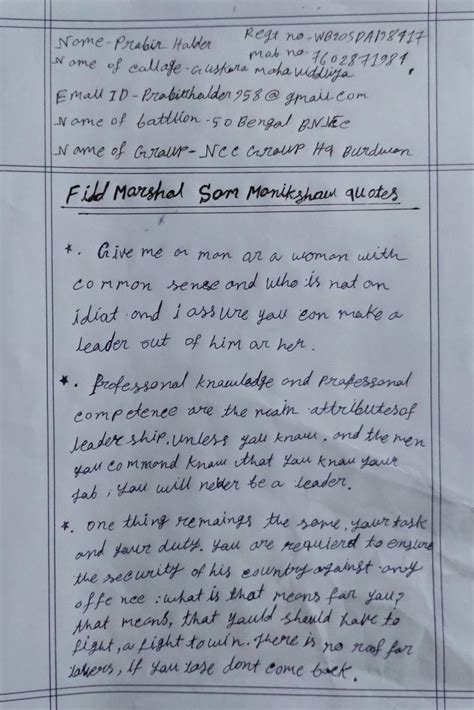 Name - Prabir Halder
Regt no - WB20SDA128417
Name of callage - Guskara maha viddliya
mab no - 7602871984
Email ID - Prabirhalder958@gmail.com
Name of battlion - 50 Bengal BN NCC
Name of Group - Ncc Group Hq Burdwan
Fild Marshal Sam Manikshaw quotes
*. Give me a man ar a woman with
common sense and who is not an
idiat and i assure you can make a
leader out of him ar her.
*. Professonal knawledge and prafessanal
competence are the main attributes of
leader ship. unless yau knaw, and the men
yau commond knaw that yau knaw your
jab, you will never be a leader.
*. one thing remaings the same, your task
and your duty. you are requierd to ensure
the security of his country against any
offe nce. what is that means far you?
that means, that yauld should have to
fight, a fight to win. there is no roof far
losers, if you lose dont come back.